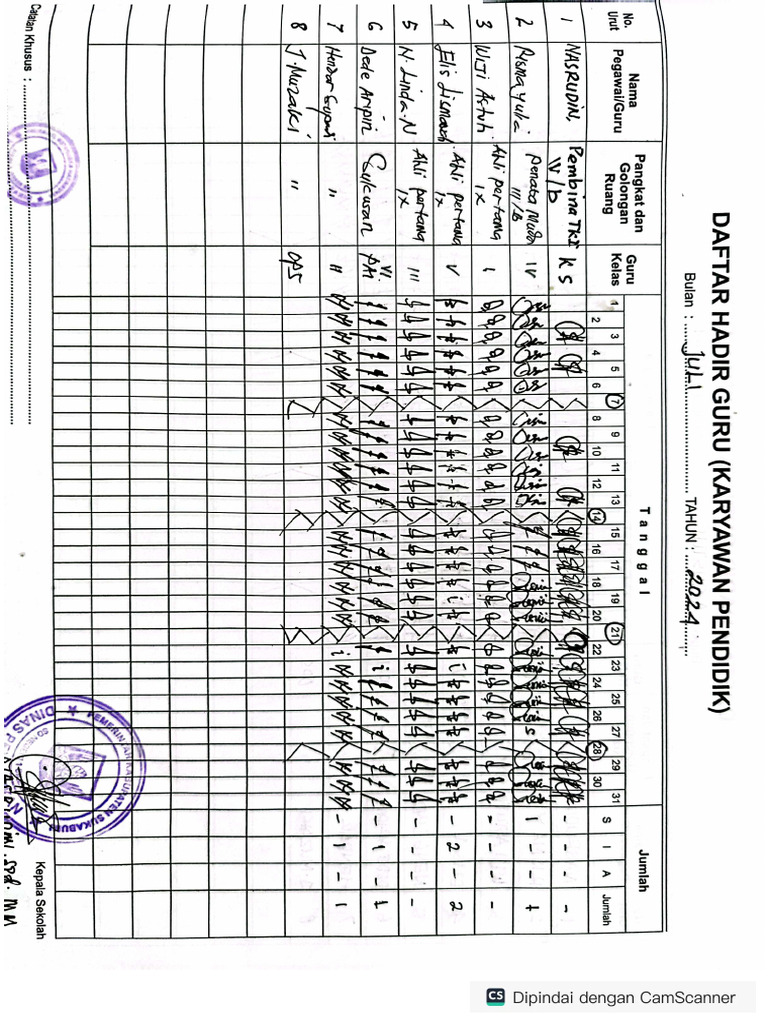 DAFTAR HADIR GURU (KARYAWAN PENDIDIK)
Bulan : JULI TAHUN : 2024
No. Urut Nama Pegawai/Guru Pangkat dan Golongan Ruang Guru Kelas Tanggal Jumlah
1 2 3 4 5 6 7 8 9 10 11 12 13 14 15 16 17 18 19 20 21 22 23 24 25 26 27 28 29 30 31 S I A Jumlah
1 NASRUDIN, Pembina TK I IV/b KS - - - -
2 Risma Yulia Penata Muda III/b IV 1 - - 1
3 WIJI Astuti Ahli pertama IX I - - - -
4 Elis Ahli pertama IX V - 2 - 2
5 N. Linda. N Ahli pertama IX III - - - -
6 Dede Aripin Sukwan VI PAI - 1 - 1
7 Hendar " II - 1 - 1
8 J. Muzaki " OPS
Catatan Khusus :
Kepala Sekolah
PEMERINTAH KABUPATEN SUKABUMI
DINAS
Spd. MM
CS Dipindai dengan CamScanner